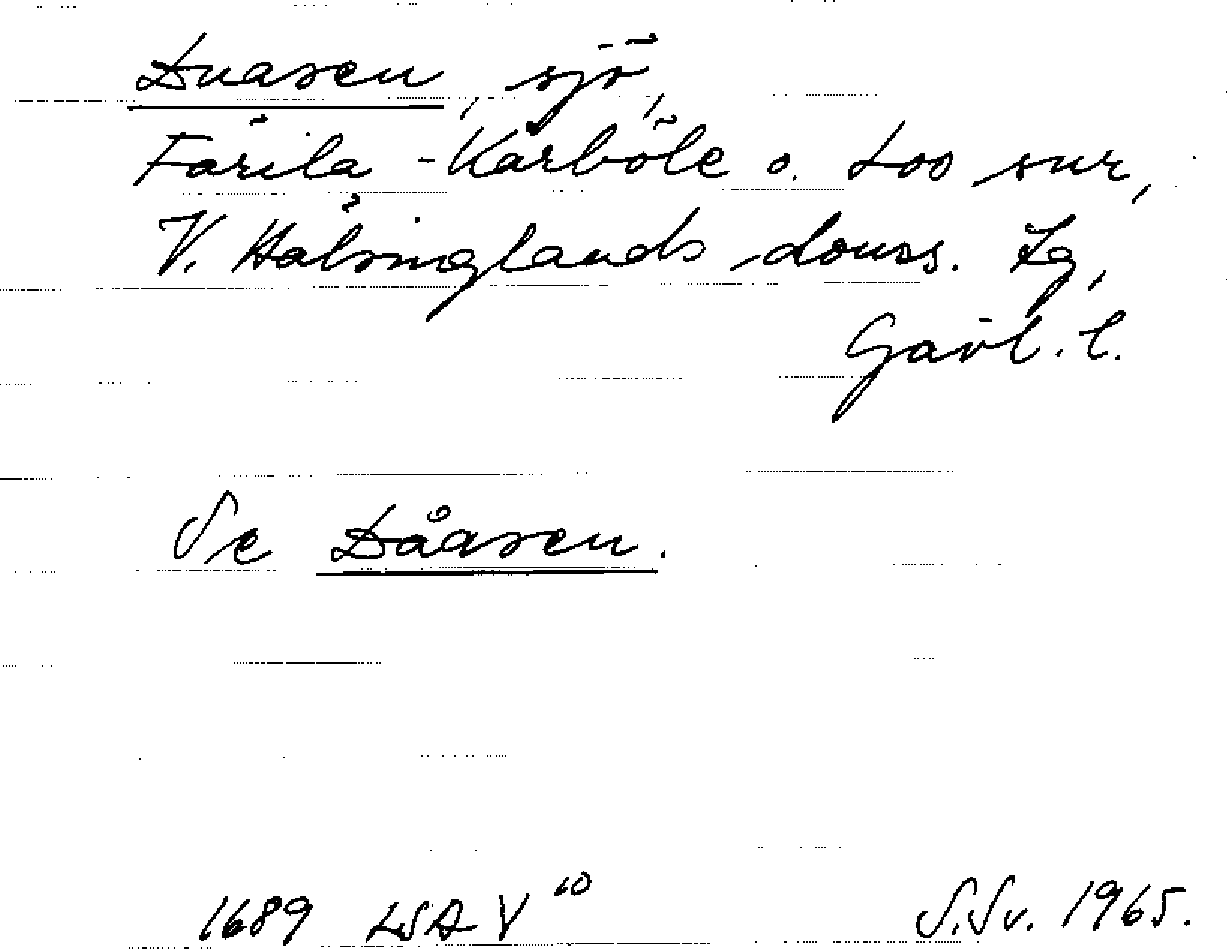 Duasen, sjö,
Färila-Kårböle o. Loo snr,
V. Hälsinglands domss. Lg,
Gävl. l.
Se Dåasen.
1689 LSA V 10
S.Sv. 1965.